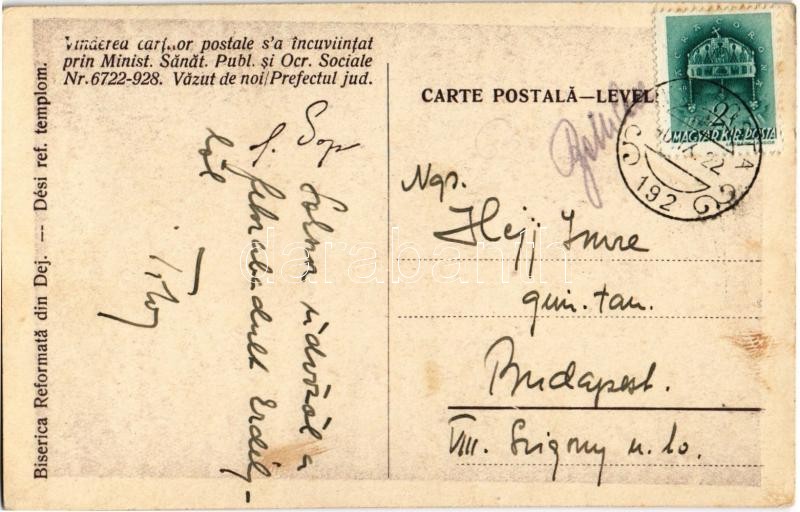 Vinderea carților postale s'a încuviințat
prin Minist. Sănăt. Publ. și Ocr. Sociale
Nr. 6722-928. Văzut de noi/Prefectul jud.
Biserica Reformată din Dej. — Dési ref. templom.
CARTE POSTALĂ—LEVEL
SACRA CORONA
MAGYAR KIR. POSTA
22
192
Nqs.
Hejj Imre
gim. tan.
Budapest.
VIII. Szigony u. 10.
üdvözöl a
felszabadult Erdély-
ből
darabanth